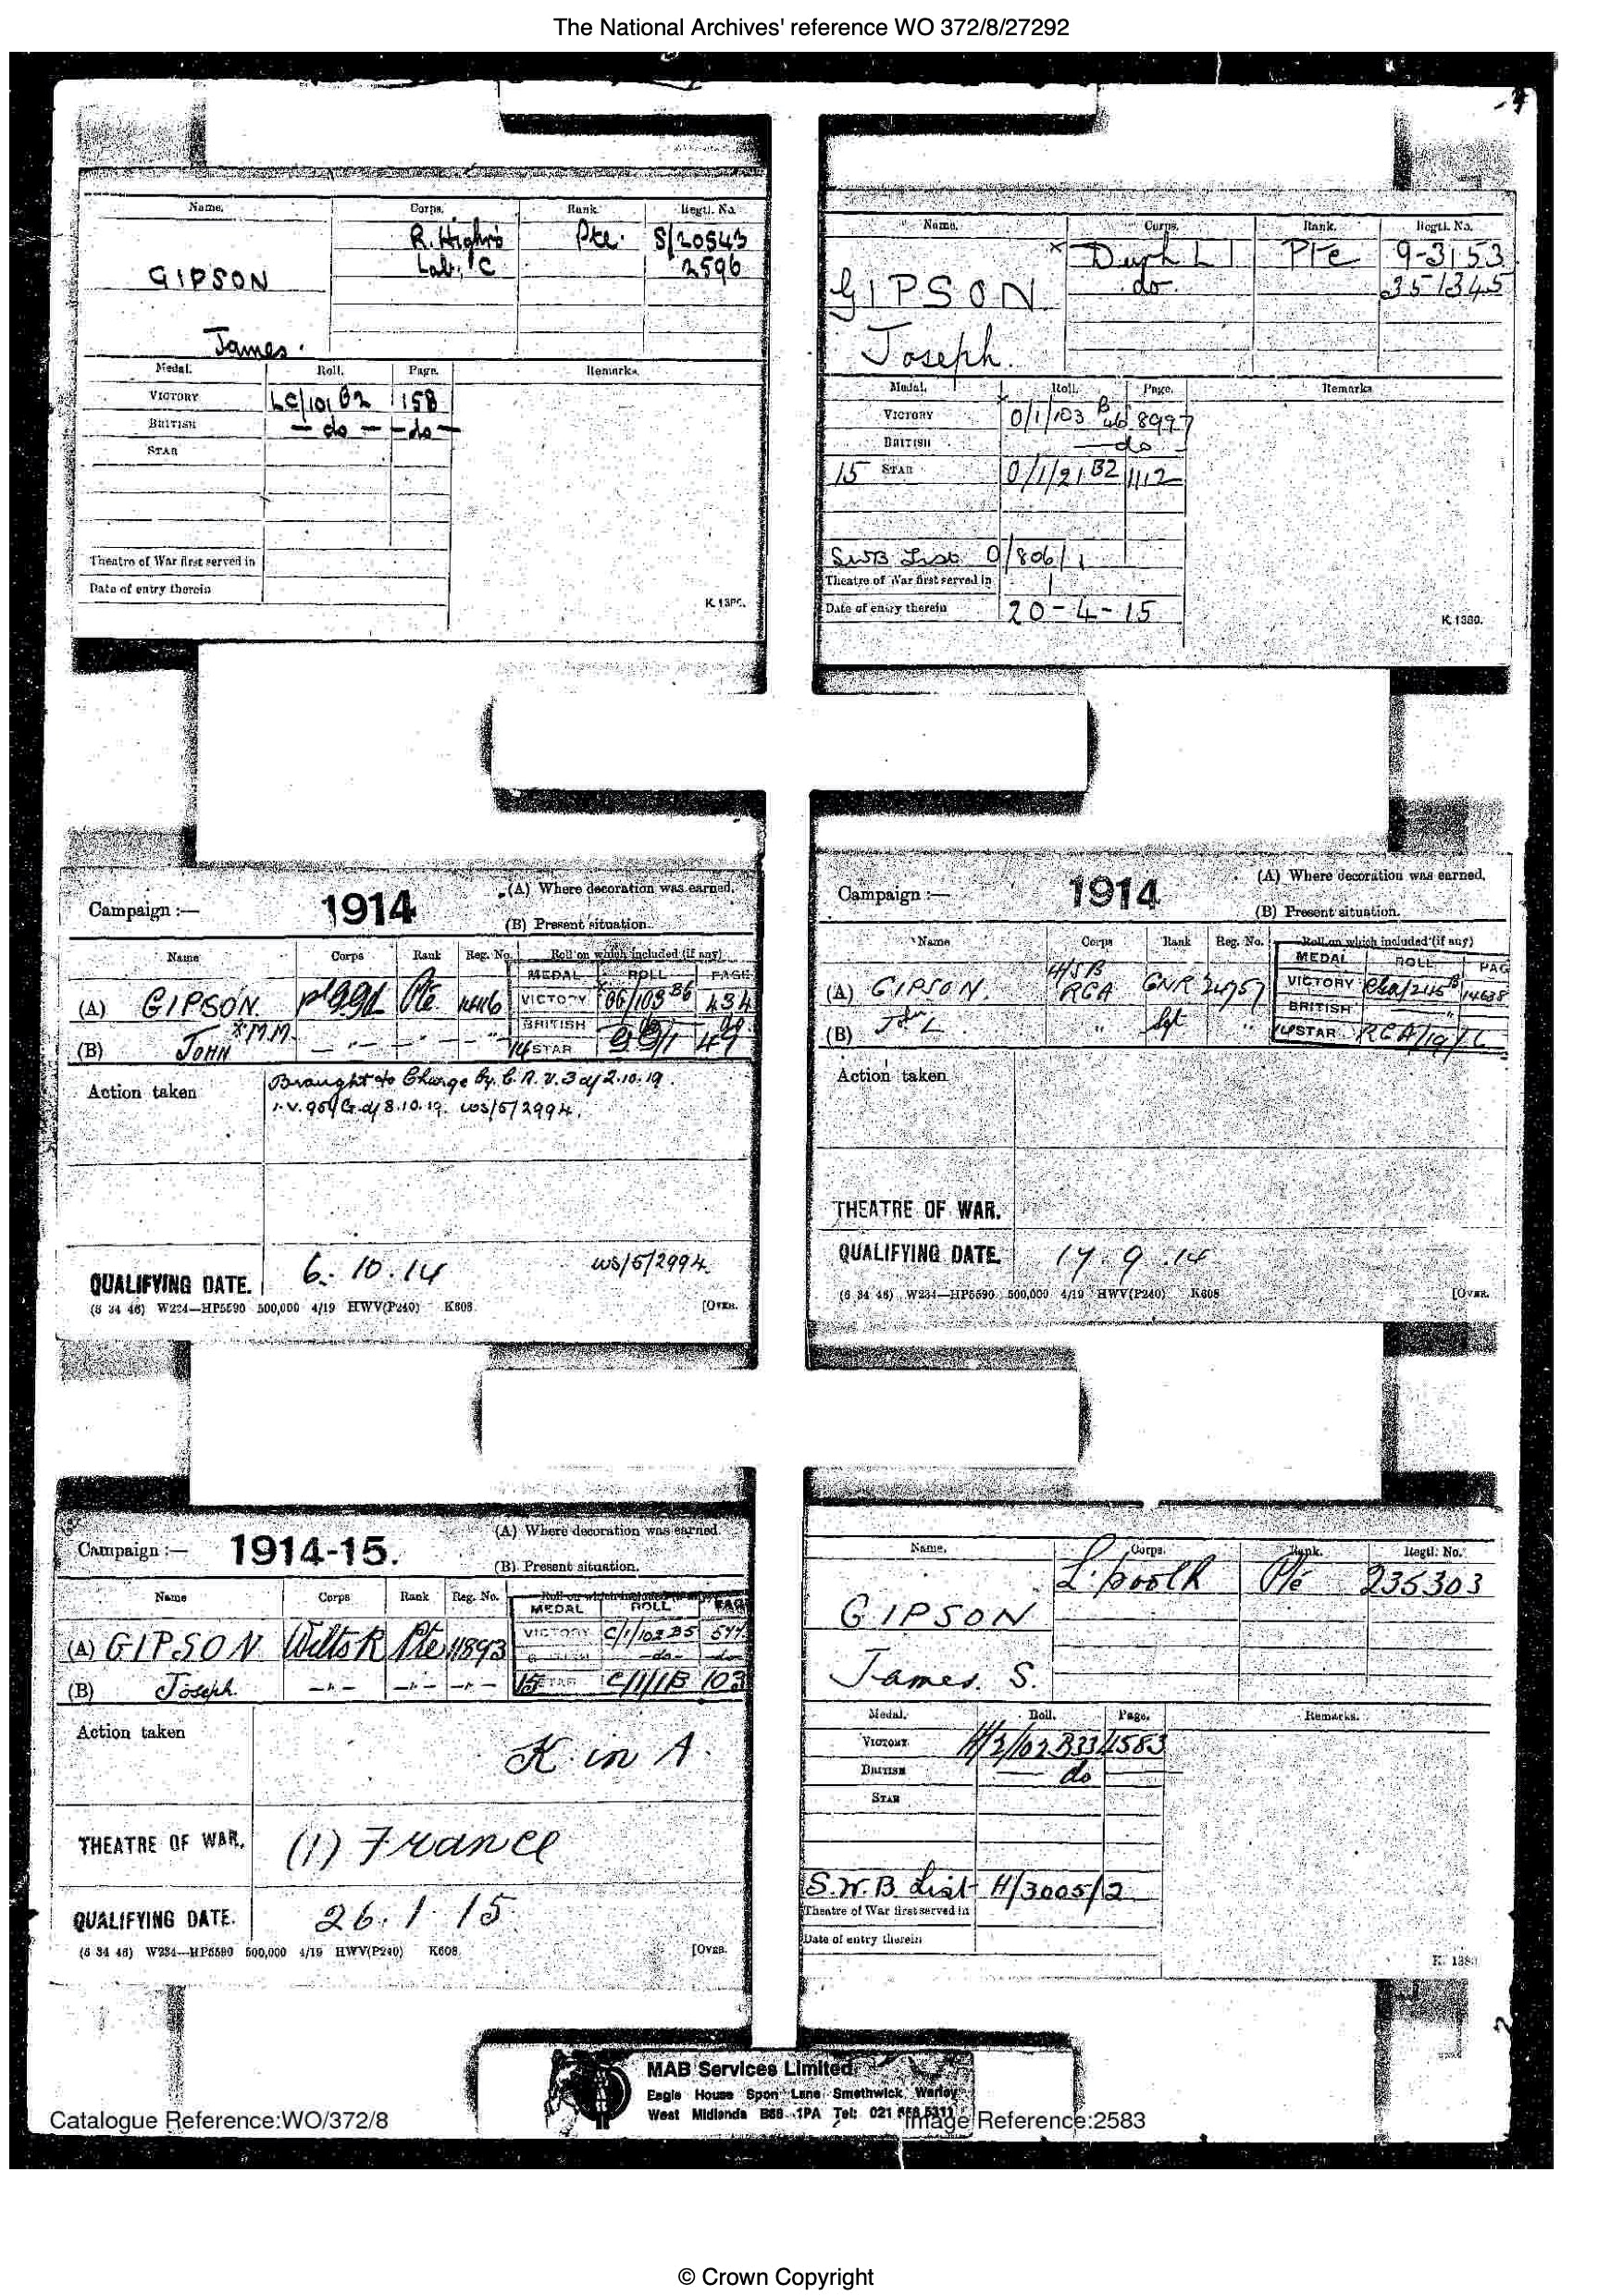 The National Archives' reference WO 372/8/27292
Name. Corps. Rank. Regtl. No.
R. Highrs Pte. S/20543
Lab. C 2596
GIPSON
James.
Medal. Roll. Page. Remarks.
VICTORY LC/101 B2 158
BRITISH — do — — do —
STAR
Theatre of War first served in
Date of entry therein
K. 1380.
Name. Corps. Rank. Regtl. No.
x Durh L I Pte 9-3153
do. 351345
GIPSON
Joseph.
Medal. Roll. Page. Remarks
VICTORY O/1/103 B 8997
BRITISH — do
15 STAR O/1/21 B2 1112
SWB List O/806/1
Theatre of War first served in
Date of entry therein 20-4-15
K. 1380.
Campaign :— 1914 (A) Where decoration was earned.
(B) Present situation.
Name Corps Rank Reg. No. Roll on which included (if any)
MEDAL ROLL PAGE
(A) GIPSON. Pte VICTORY 434
x M.M. BRITISH
(B) JOHN — " — 14 STAR
Action taken Brought to Charge by C.R.V. 3 d/ 2.10.19.
8.10.19. WS/5/2994.
QUALIFYING DATE. 6.10.14 WS/5/2994.
(6 34 46) W234—HP5590 500,000 4/19 HWV(P240) K608 [OVER.
Campaign :— 1914 (A) Where decoration was earned.
(B) Present situation.
Name Corps Rank Reg. No. Roll on which included (if any)
MEDAL ROLL PAG
(A) GIPSON. RGA GNR 24757 VICTORY 14638
BRITISH "
(B) John L. " Sgt " 14 STAR
Action taken
THEATRE OF WAR.
QUALIFYING DATE. 17.9.14
(6 34 46) W234—HP5590 500,000 4/19 HWV(P240) K608 [OVER.
Campaign :— 1914-15. (A) Where decoration was earned.
(B) Present situation.
Name Corps Rank Reg. No. Roll on which included
MEDAL ROLL PAGE
(A) GIPSON Wilts R Pte 11893 VICTORY C/1/102 B5 544
-do- -do-
(B) Joseph. —"— —"— —"— 15 STAR C/1/1B 103
Action taken K in A.
THEATRE OF WAR. (1) France
QUALIFYING DATE. 26.1.15.
(6 34 46) W234—HP5590 500,000 4/19 HWV(P240) K608. [OVER.
Name. Corps. Rank. Regtl. No.
L'pool R Pte 235303
GIPSON
James. S.
Medal. Roll. Page. Remarks.
VICTORY H/2/102 B33 4583
BRITISH — do —
STAR
S.W.B. List H/3005/2
Theatre of War first served in
Date of entry therein
K. 1380
MAB Services Limited
Eagle House Spon Lane Smethwick Warley
West Midlands B66 1PA Tel: 021
Catalogue Reference:WO/372/8 Image Reference:2583
© Crown Copyright